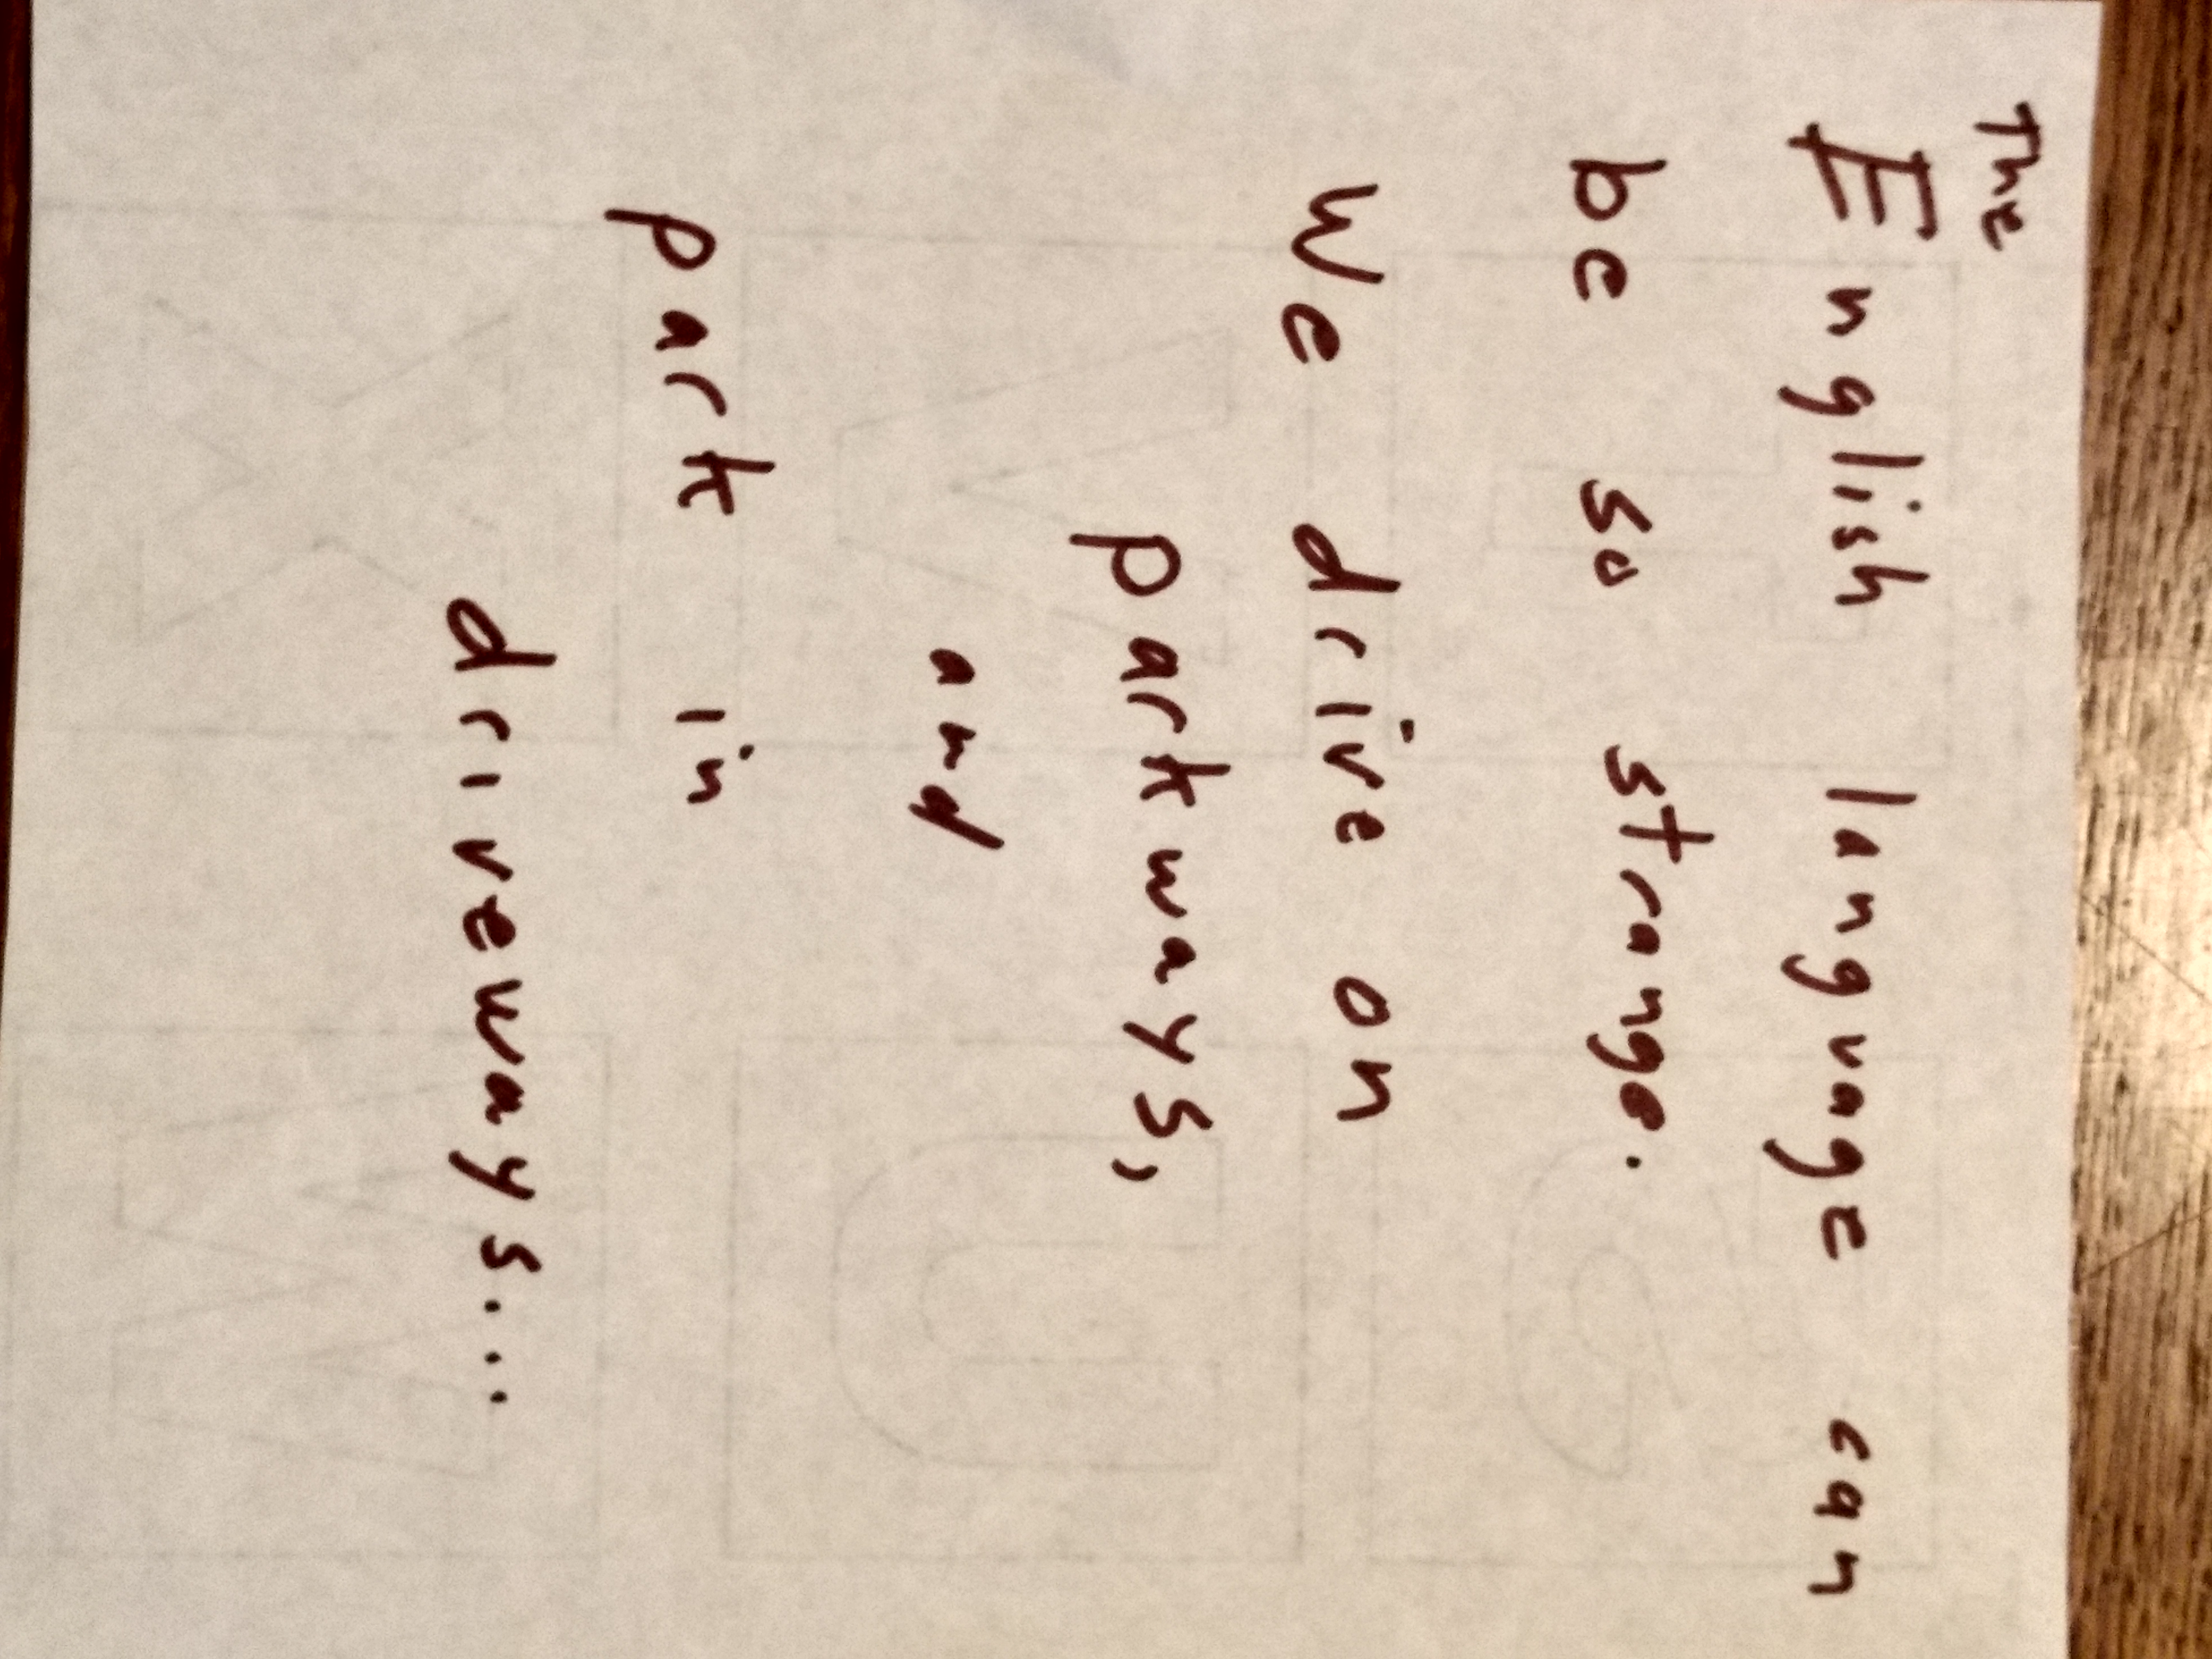 The
English language can
be so strange.
We drive on
parkways,
and
park in
driveways...